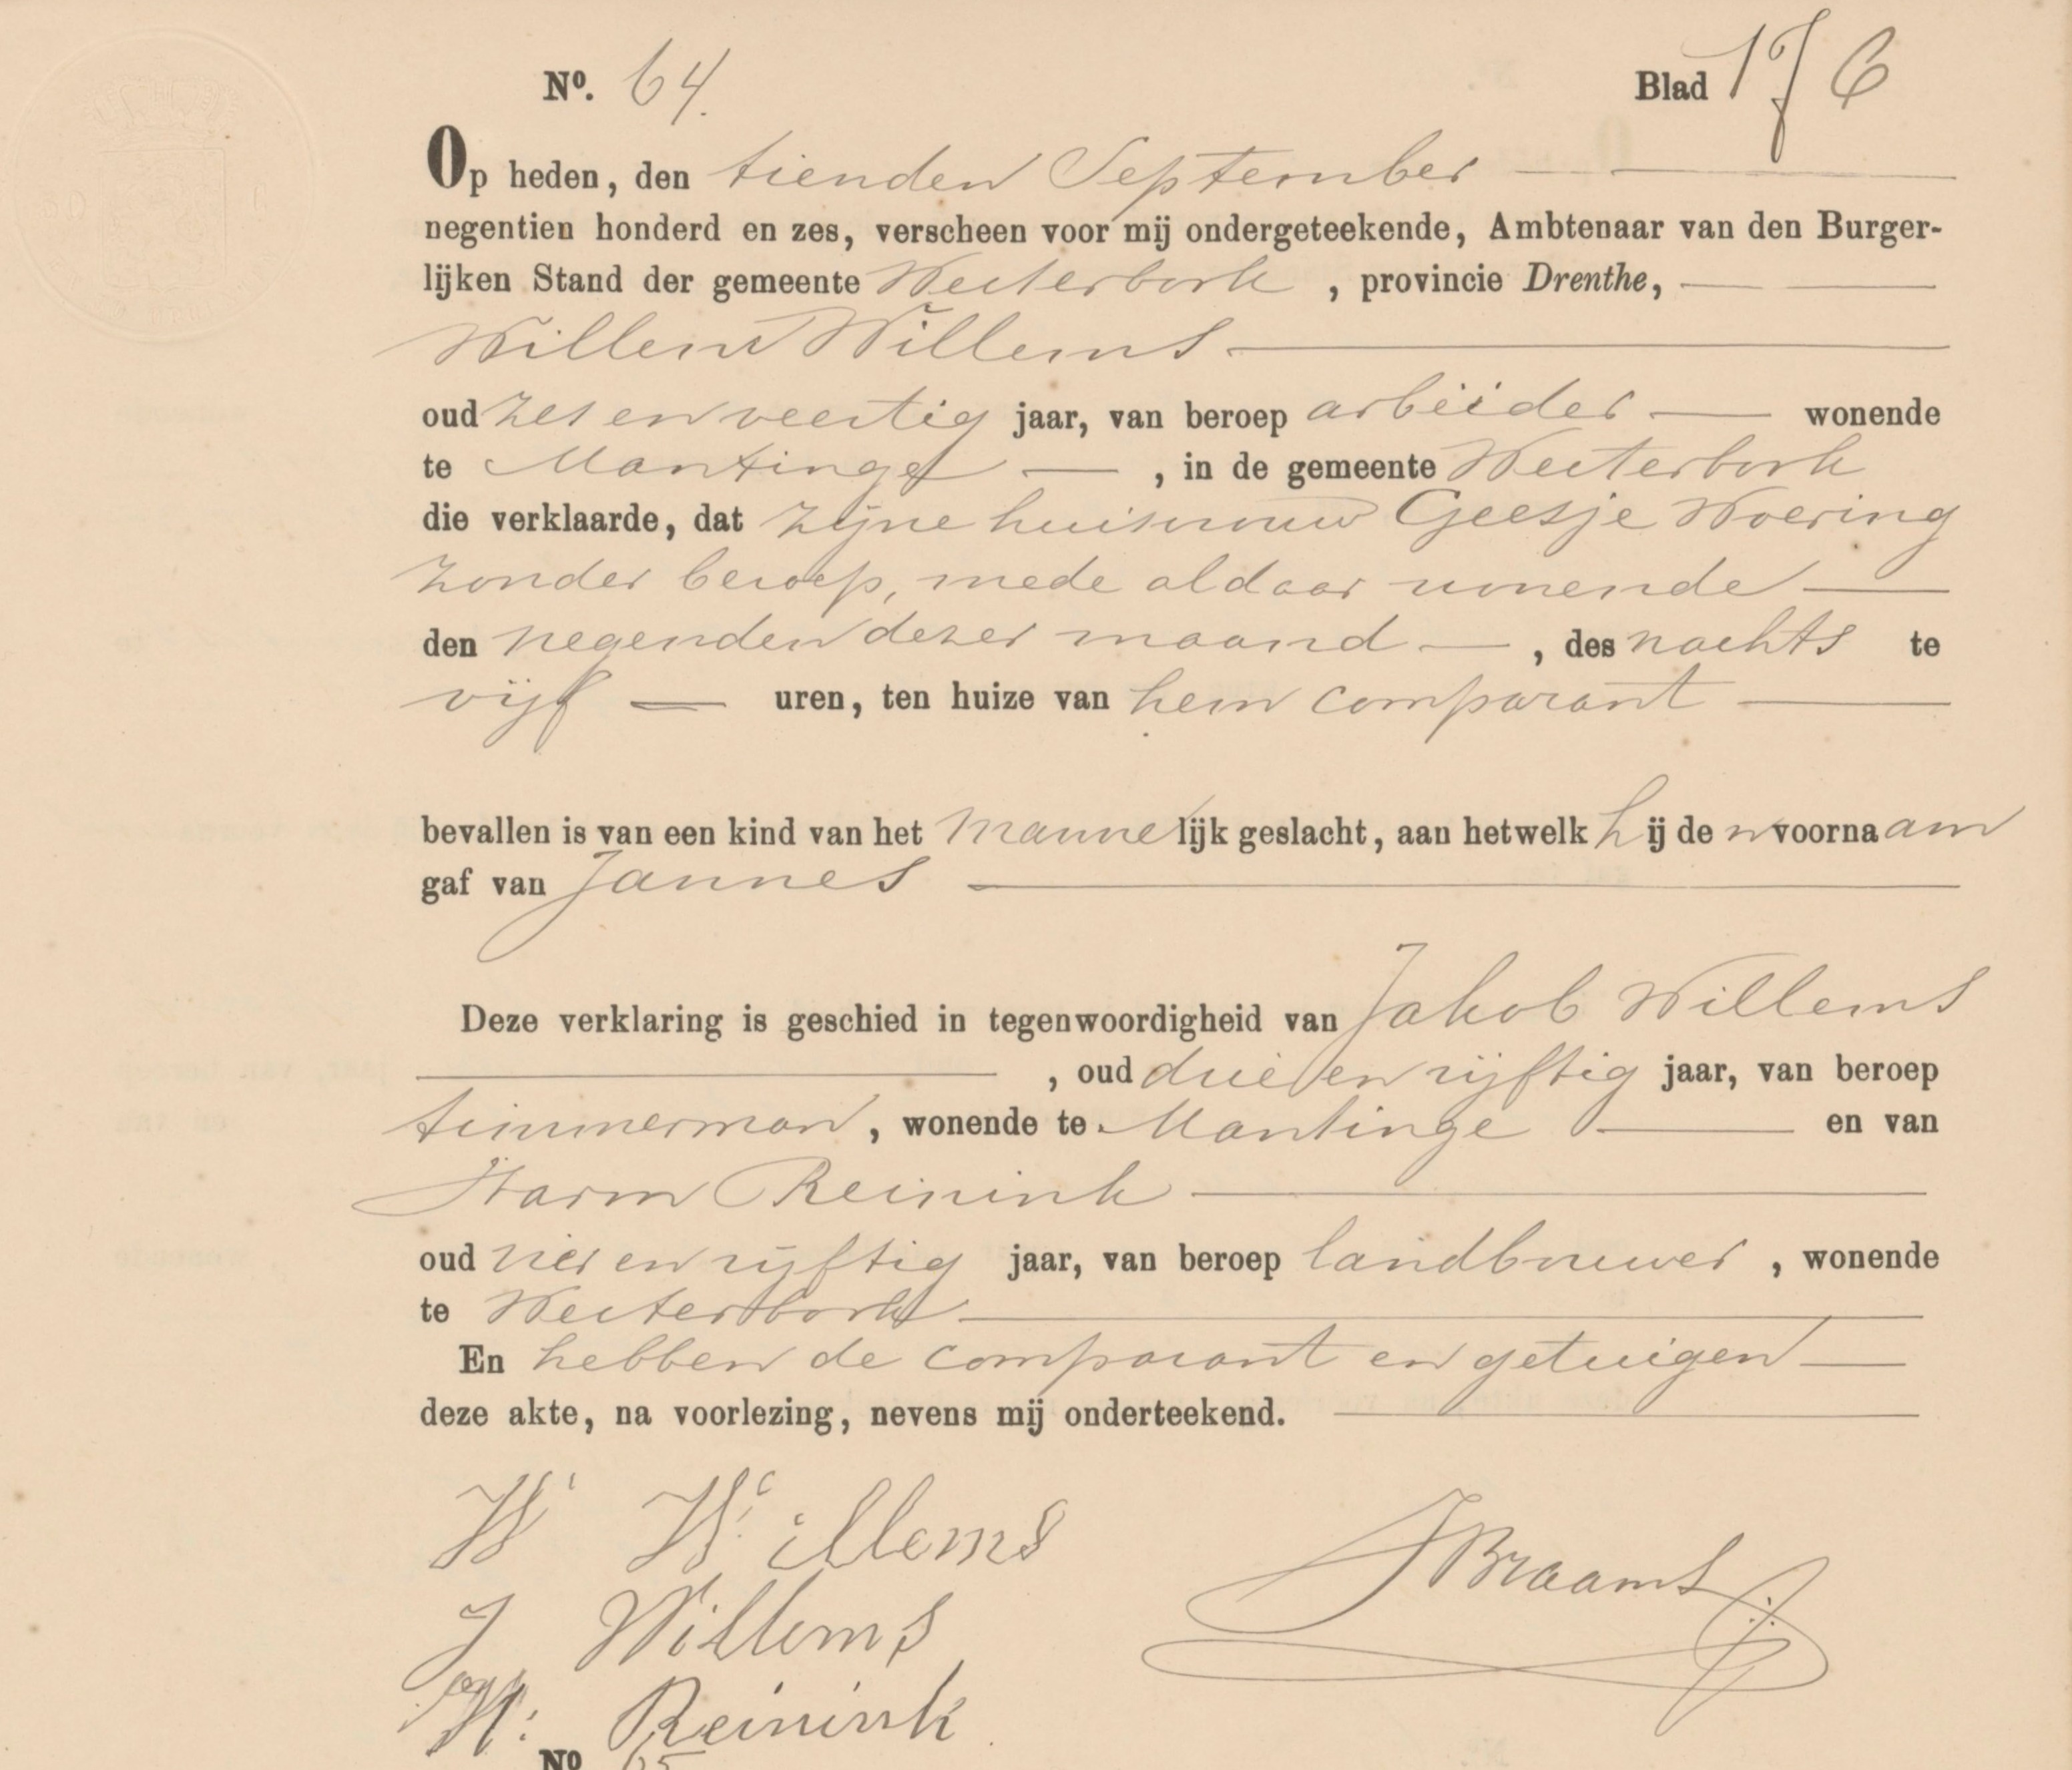 Nº. 64. Blad 176
Op heden, den tienden September
negentien honderd en zes, verscheen voor mij ondergeteekende, Ambtenaar van den Burger-
lijken Stand der gemeente Westerbork, provincie Drenthe,
Willem Willems
oud zes en veertig jaar, van beroep arbeider wonende
te Mantinge, in de gemeente Westerbork
die verklaarde, dat zijne huisvrouw Geesje Woering
zonder beroep, mede aldaar wonende
den negenden dezer maand, des nachts te
vijf uren, ten huize van hem comparant
bevallen is van een kind van het mannelijk geslacht, aan hetwelk hij den voornaam
gaf van Jannes
Deze verklaring is geschied in tegenwoordigheid van Jakob Willems
, oud drie en vijftig jaar, van beroep
timmerman, wonende te Mantinge en van
Harm Reinink
oud vier en vijftig jaar, van beroep landbouwer, wonende
te Westerbork
En hebben de comparant en getuigen
deze akte, na voorlezing, nevens mij onderteekend.
W Willems
J Willems
H: Reinink
Braams
Nº 65